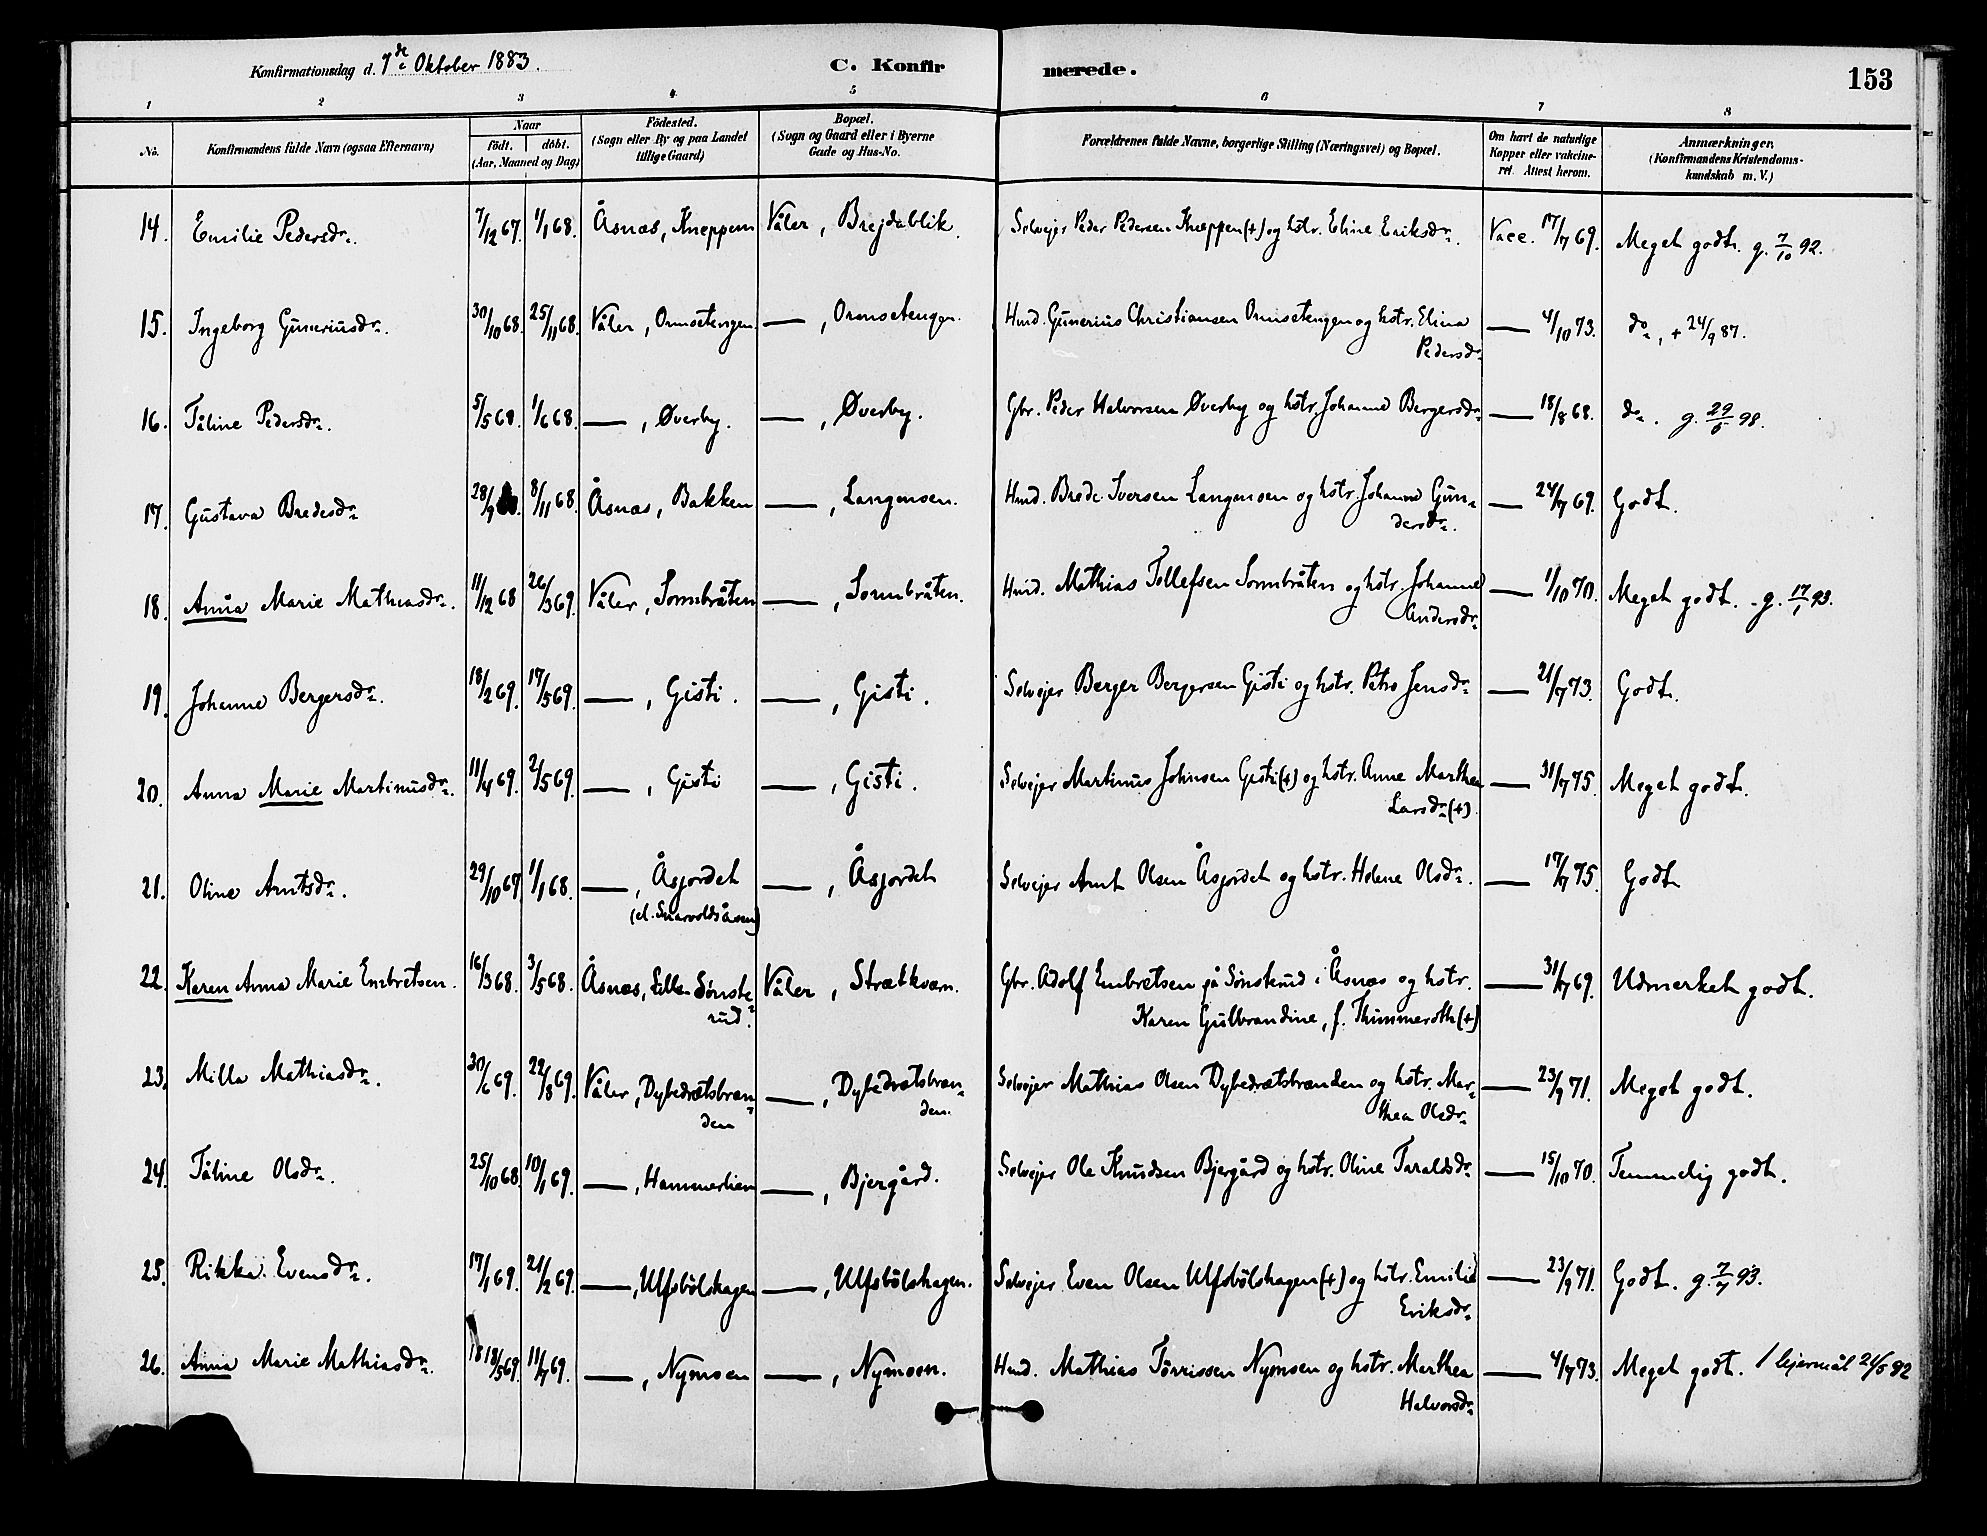 Konfirmationsdag d. 7de Oktober 1883.
C. Konfirmerede.
153
1 2 3 4 5 6 7 8
No. Konfirmandens fulde Navn (ogsaa Efternavn) Naar födt. döbt. (Aar, Maaned og Dag) Födested. (Sogn eller By og paa Landet tillige Gaard) Bopæl. (Sogn og Gaard eller i Byerne Gade og Hus-No. Forældrenes fulde Navne, borgerlige Stilling (Næringsvei) og Bopæl. Om havt de naturlige Kopper eller vakcineret. Attest herom. Anmærkninger. (Konfirmandens Kristendomskundskab m. V.)
14. Emilie Pedersdr. 7/12 67. 1/1 68. Åsnæs, Kneppen Våler, Brejdablik. Selvejer Peder Pedersen Kneppen (+) og hstr. Eline Eriksdr. Vacc. 17/7 69. Meget godt. g. 7/10 92.
15. Ingeborg Guneriusdr. 30/10 68. 25/11 68. Våler, Ormsetengen — , Ormsetengen. Hmd. Gunerius Christiansen Ormsetengen og hstr. Elina — 4/10 73. do, + 24/9 87.
Pedersdr.
16. Tåline Pedersdr. 5/5 68. 1/6 68. — , Øverby. — , Øverby. Gbr. Peder Halvorsen Øverby og hstr. Johanne Bergersdr. — 18/8 68. do. g. 29/6 98.
17. Gustava Bredesdr. 28/9 8/11 68. Åsnæs, Bakken — , Langmoen. Hmd. Brede Iversen Langmoen og hstr. Johanne Gun- — 24/7 69. Godt.
dersdr.
18. Anna Marie Mathiasdr. 11/12 68 26/3 69. Våler, Sormbråten — , Sormbråten. Hmd. Mathias Tollefsen Sormbråten og hstr. Johanne — 1/10 70. Meget godt. - g. 17/1 93.
Andersdr.
19. Johanne Bergersdr. 18/2 69. 17/5 69. — , Gisti. — , Gisti. Selvejer Berger Bergersen Gisti og hstr. Petro Jensdr. — 21/7 73. Godt.
20. Anna Marie Martinusdr. 11/4 69. 2/5 69. — , Gisti — , Gisti. Selvejer Martinus Johnsen Gisti (+) og hstr. Anne Marthea — 31/7 75. Meget godt.
Larsdr. (+)
21. Oline Arntsdr. 29/10 67. 1/1 68. — , Åsjordet — , Åsjordet Selvejer Arnt Olsen Åsjordet og hstr. Helene Olsdr. — 17/7 75. Godt
(el. Snarvoldsåsen)
22. Karen Anna Marie Embretsen. 16/3 68. 3/5 68. Åsnæs, Lille Sønste- Våler, Strætkværn. Gbr. Adolf Embretsen på Sønsterud i Åsnæs og hstr. — 31/7 69. Udmerket godt.
rud. Karen Gulbrandine, f. Thimmeroth (+)
23. Milla Mathiasdr. 30/6 69. 22/8 69. Våler, Dybedrætsbræn- — , Dybedrætsbræn- Selvejer Mathias Olsen Dybedrætsbrænden og hstr. Mar- — 23/9 71. Meget godt.
den den. thea Olsdr.
24. Tåline Olsdr. 25/10 68. 10/1 69. — , Hammerlien — , Bjergård. Selvejer Ole Knudsen Bjergård og hstr. Oline Taraldsdr. — 15/10 70. Temmelig godt.
25. Rikka Evensdr. 17/1 69. 21/2 69. — , Ulfsbölshagen — , Ulfsbölshagen. Selvejer Even Olsen Ulfsbölshagen (+) og hstr. Emilie — 23/9 71. Godt. g. 7/7 93.
Eriksdr.
26. Anna Marie Mathiasdr. 18/5 69. 11/7 69. — , Nymoen — , Nymoen. Hmd. Mathias Torrissen Nymoen og hstr. Marthea — 4/7 73. Meget godt. 1 lejermål 21/5 92
Halvorsdr.